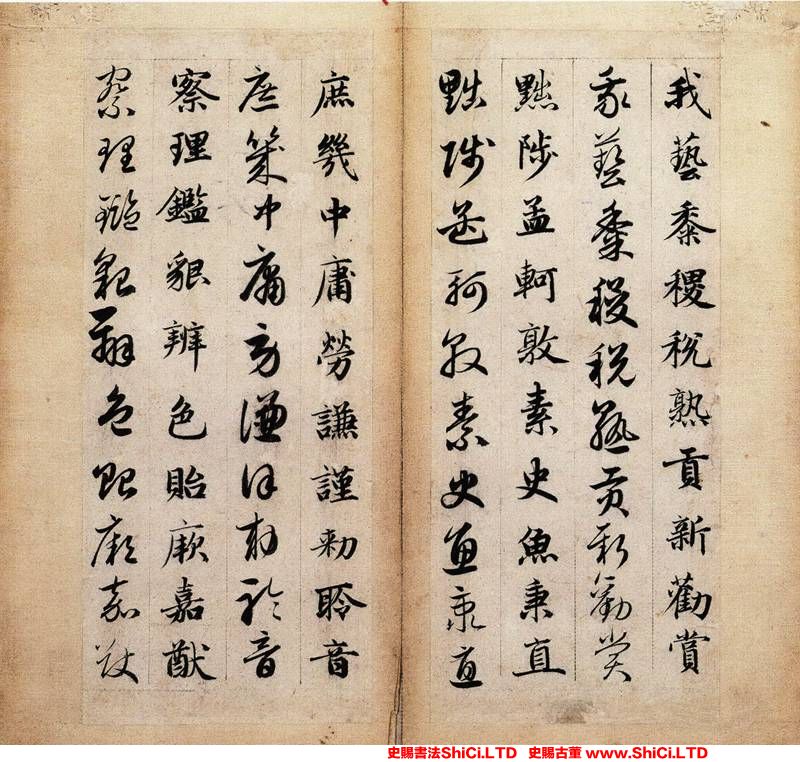 我藝黍稷稅熟貢新勸賞
我藝黍稷稅熟貢新勸賞
黜陟孟軻敦素史魚秉直
黜陟孟軻敦素史魚秉直
庶幾中庸勞謙謹勅聆音
庶幾中庸勞謙謹勅聆音
察理鑑貌辨色貽厥嘉猷
察理鑑貌辨色貽厥嘉猷
史賜書法ShiCi.LTD 史賜古董 www.ShiCi.LTD